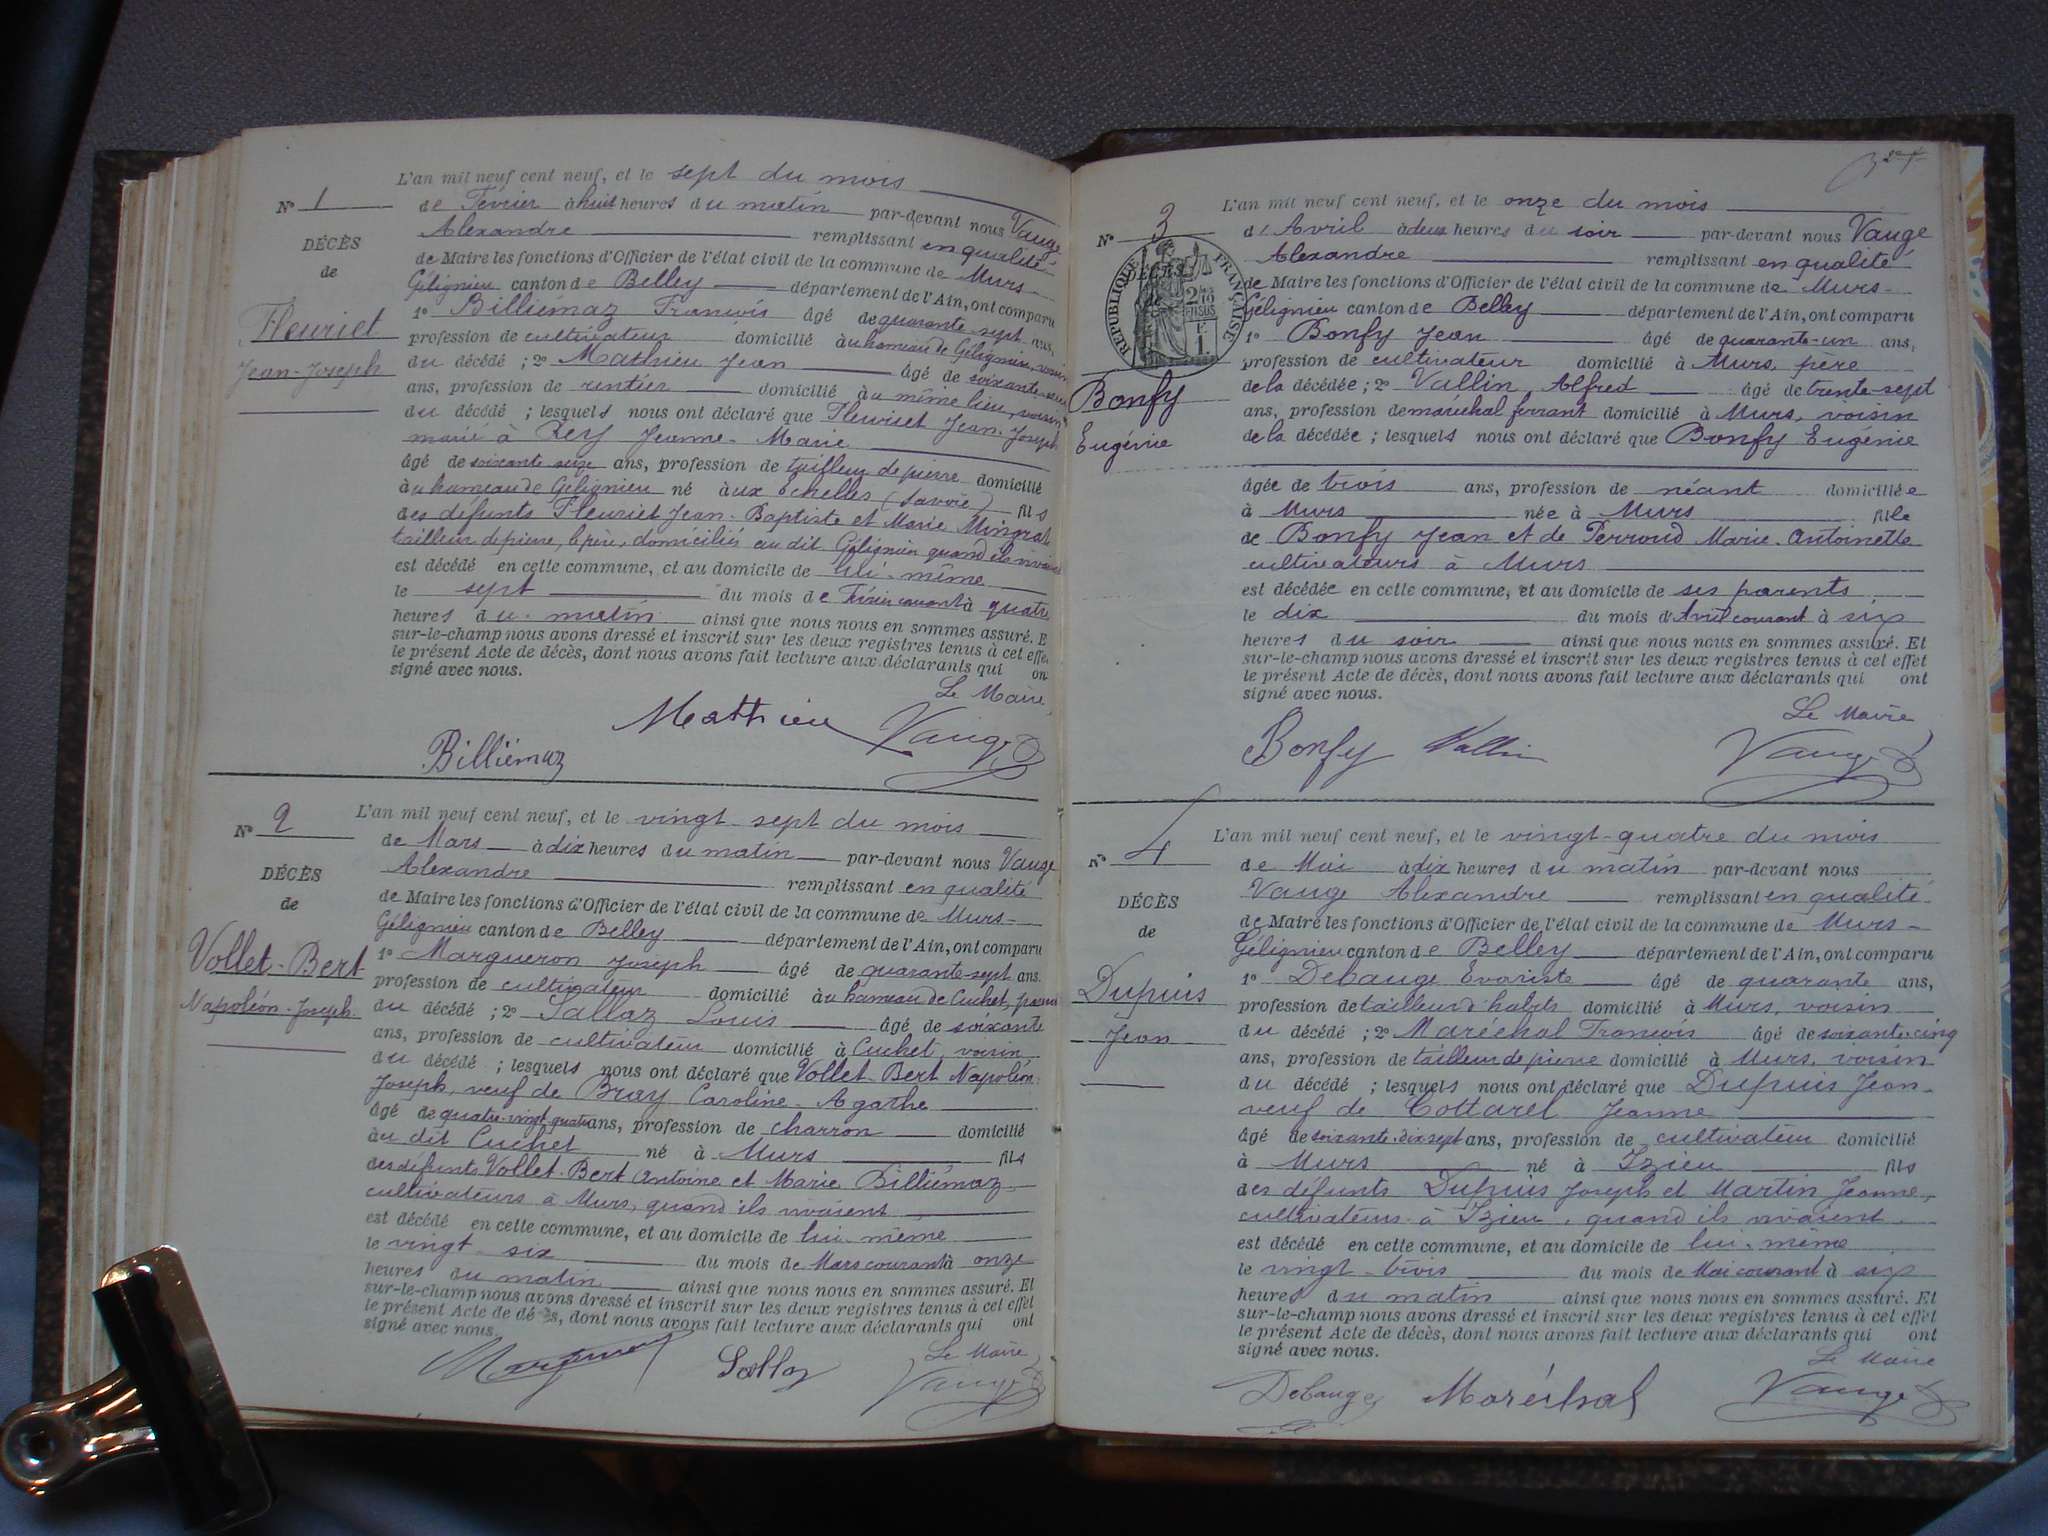 L'an mil neuf cent neuf, et le sept du mois
N° 1
de Février à huit heures du matin par-devant nous Vauge
Alexandre remplissant en qualité
DÉCÈS
de Maire les fonctions d'Officier de l'état civil de la commune de Murs-
de
Gélignieu canton de Belley département de l'Ain, ont comparu
1° Billiémaz François âgé de quarante-sept ans,
Fleuriet
profession de cultivateur domicilié au hameau de Gélignieu, voisin
Jean-Joseph
du décédé ; 2° Mathieu Jean âgé de soixante
ans, profession de rentier domicilié au même lieu, voisin
du décédé ; lesquels nous ont déclaré que Fleuriet Jean-Joseph
marié à Rey Jeanne-Marie
âgé de soixante seize ans, profession de tailleur de pierre domicilié
au hameau de Gélignieu né aux Echelles (Savoie) fils
des défunts Fleuriet Jean-Baptiste et Marie Mingrat
tailleur de pierre, le père, domiciliés au dit Gélignieu quand ils vivaient
est décédé en cette commune, et au domicile de lui-même
le sept du mois de Février courant à quatre
heures du matin ainsi que nous nous en sommes assuré. E
sur-le-champ nous avons dressé et inscrit sur les deux registres tenus à cet effet
le présent Acte de décès, dont nous avons fait lecture aux déclarants qui on
signé avec nous.
Le Maire,
Mathieu Vauge
Billiémaz
L'an mil neuf cent neuf, et le vingt-sept du mois
N° 2
de Mars à dix heures du matin par-devant nous Vauge
Alexandre remplissant en qualité
DÉCÈS
de Maire les fonctions d'Officier de l'état civil de la commune de Murs-
de
Gélignieu canton de Belley département de l'Ain, ont comparu
1° Margueron Joseph âgé de quarante-sept ans.
Vollet-Bert
profession de cultivateur domicilié au hameau de Cuchet,
Napoléon-Joseph
du décédé ; 2° Sallaz Louis âgé de soixante
ans, profession de cultivateur domicilié à Cuchet, voisin
du décédé ; lesquels nous ont déclaré que Vollet-Bert Napoléon-
Joseph, veuf de Bray Caroline-Agathe
âgé de quatre-vingt-quatre ans, profession de charron domicilié
au dit Cuchet né à Murs fils
des défunts Vollet-Bert Antoine et Marie Billiémaz
cultivateurs à Murs, quand ils vivaient
est décédé en cette commune, et au domicile de lui-même
le vingt-six du mois de Mars courant à onze
heures du matin ainsi que nous nous en sommes assuré. Et
sur-le-champ nous avons dressé et inscrit sur les deux registres tenus à cet effet
le présent Acte de décès, dont nous avons fait lecture aux déclarants qui ont
signé avec nous.
Le Maire
Margueron Sallaz Vauge
L'an mil neuf cent neuf, et le onze du mois
N° 3
d'Avril à deux heures du soir par-devant nous Vauge
Alexandre remplissant en qualité
RÉPUBLIQUE FRANÇAISE
DÉCÈS
de Maire les fonctions d'Officier de l'état civil de la commune de Murs-
Gélignieu canton de Belley département de l'Ain, ont comparu
1° Bonfy Jean âgé de quarante-un ans,
profession de cultivateur domicilié à Murs, père
Bonfy
de la décédée ; 2° Vallin Alfred âgé de trente-sept
ans, profession de maréchal ferrant domicilié à Murs, voisin
Eugénie
de la décédée ; lesquels nous ont déclaré que Bonfy Eugénie
âgée de trois ans, profession de néant domiciliée
à Murs née à Murs fille
de Bonfy Jean et de Perroud Marie-Antoinette
cultivateurs à Murs
est décédée en cette commune, et au domicile de ses parents
le dix du mois d'Avril courant à six
heures du soir ainsi que nous nous en sommes assuré. Et
sur-le-champ nous avons dressé et inscrit sur les deux registres tenus à cet effet
le présent Acte de décès, dont nous avons fait lecture aux déclarants qui ont
signé avec nous.
Le Maire
Bonfy Vallin Vauge
L'an mil neuf cent neuf, et le vingt-quatre du mois
N° 4
de Mai à dix heures du matin par-devant nous
Vauge Alexandre remplissant en qualité
DÉCÈS
de Maire les fonctions d'Officier de l'état civil de la commune de Murs-
de
Gélignieu canton de Belley département de l'Ain, ont comparu
1° Debauge Evariste âgé de quarante ans,
Dupuis
profession de tailleur d'habits domicilié à Murs, voisin
Jean
du décédé ; 2° Maréchal François âgé de soixante-cinq
ans, profession de tailleur de pierre domicilié à Murs, voisin
du décédé ; lesquels nous ont déclaré que Dupuis Jean-
veuf de Cottarel Jeanne
âgé de soixante-dix sept ans, profession de cultivateur domicilié
à Murs né à Izieu fils
des défunts Dupuis Joseph et Martin Jeanne,
cultivateurs à Izieu, quand ils vivaient
est décédé en cette commune, et au domicile de lui-même
le vingt-trois du mois de Mai courant à six
heures du matin ainsi que nous nous en sommes assuré. Et
sur-le-champ nous avons dressé et inscrit sur les deux registres tenus à cet effet
le présent Acte de décès, dont nous avons fait lecture aux déclarants qui ont
signé avec nous.
Le Maire
Debauge Maréchal Vauge